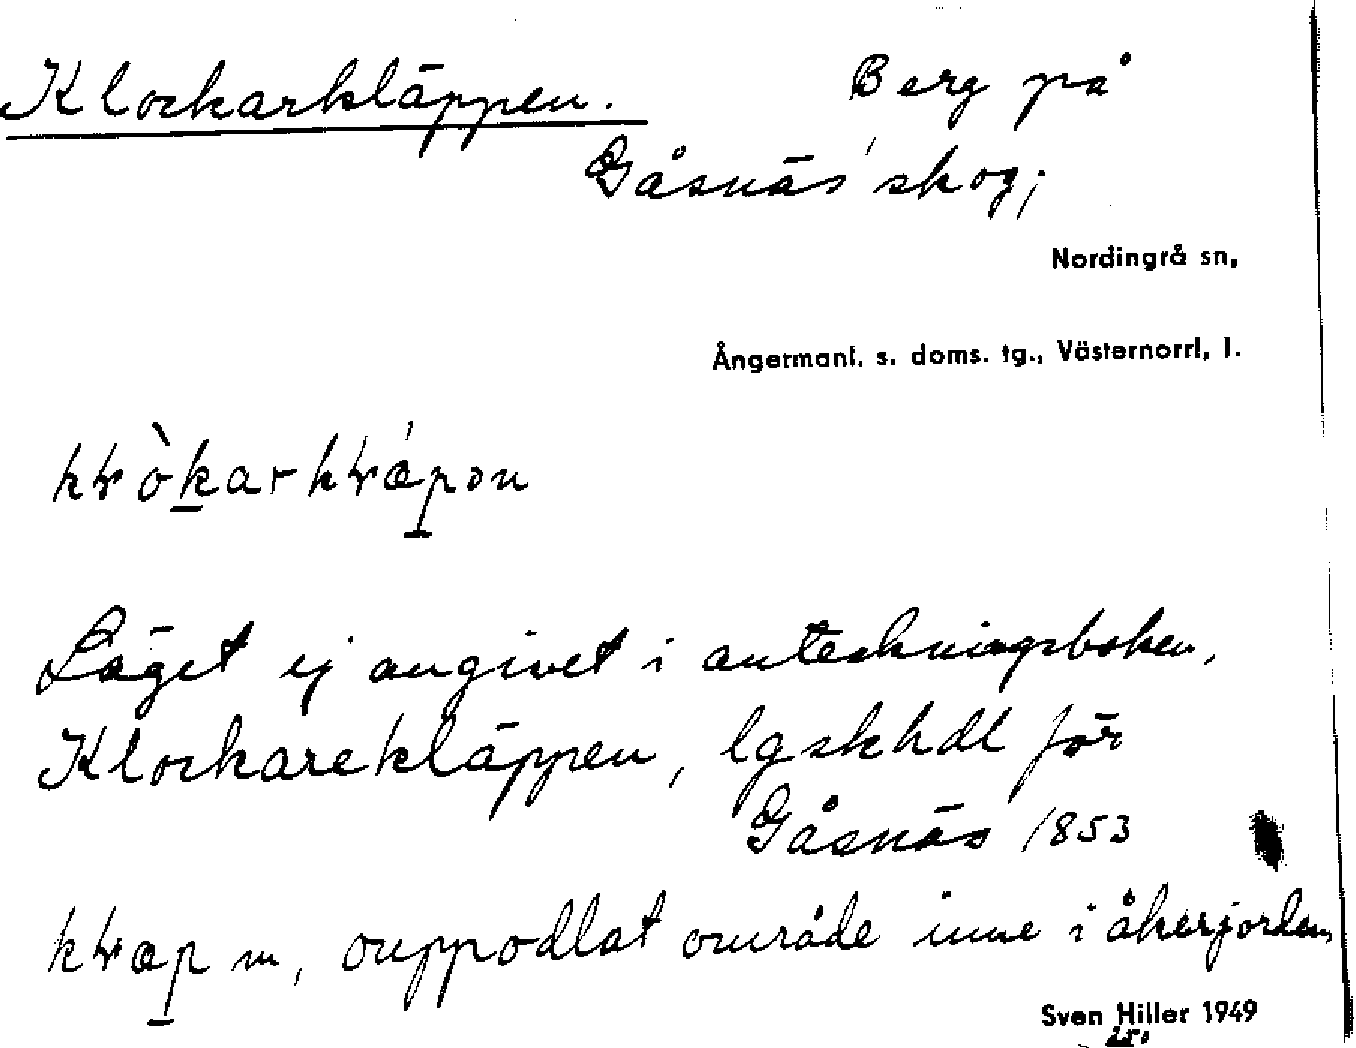 Klockarkläppen. Berg på
Gåsnäs' skog;
Nordingrå sn,
Ångermanl. s. doms. tg., Västernorrl, l.
Läget ej angivet i anteckningsboken,
Klockarekläppen, lgskhdl för
Gåsnäs 1853
m, ouppodlat område inne i åkerjorden,
Sven Hiller 1949